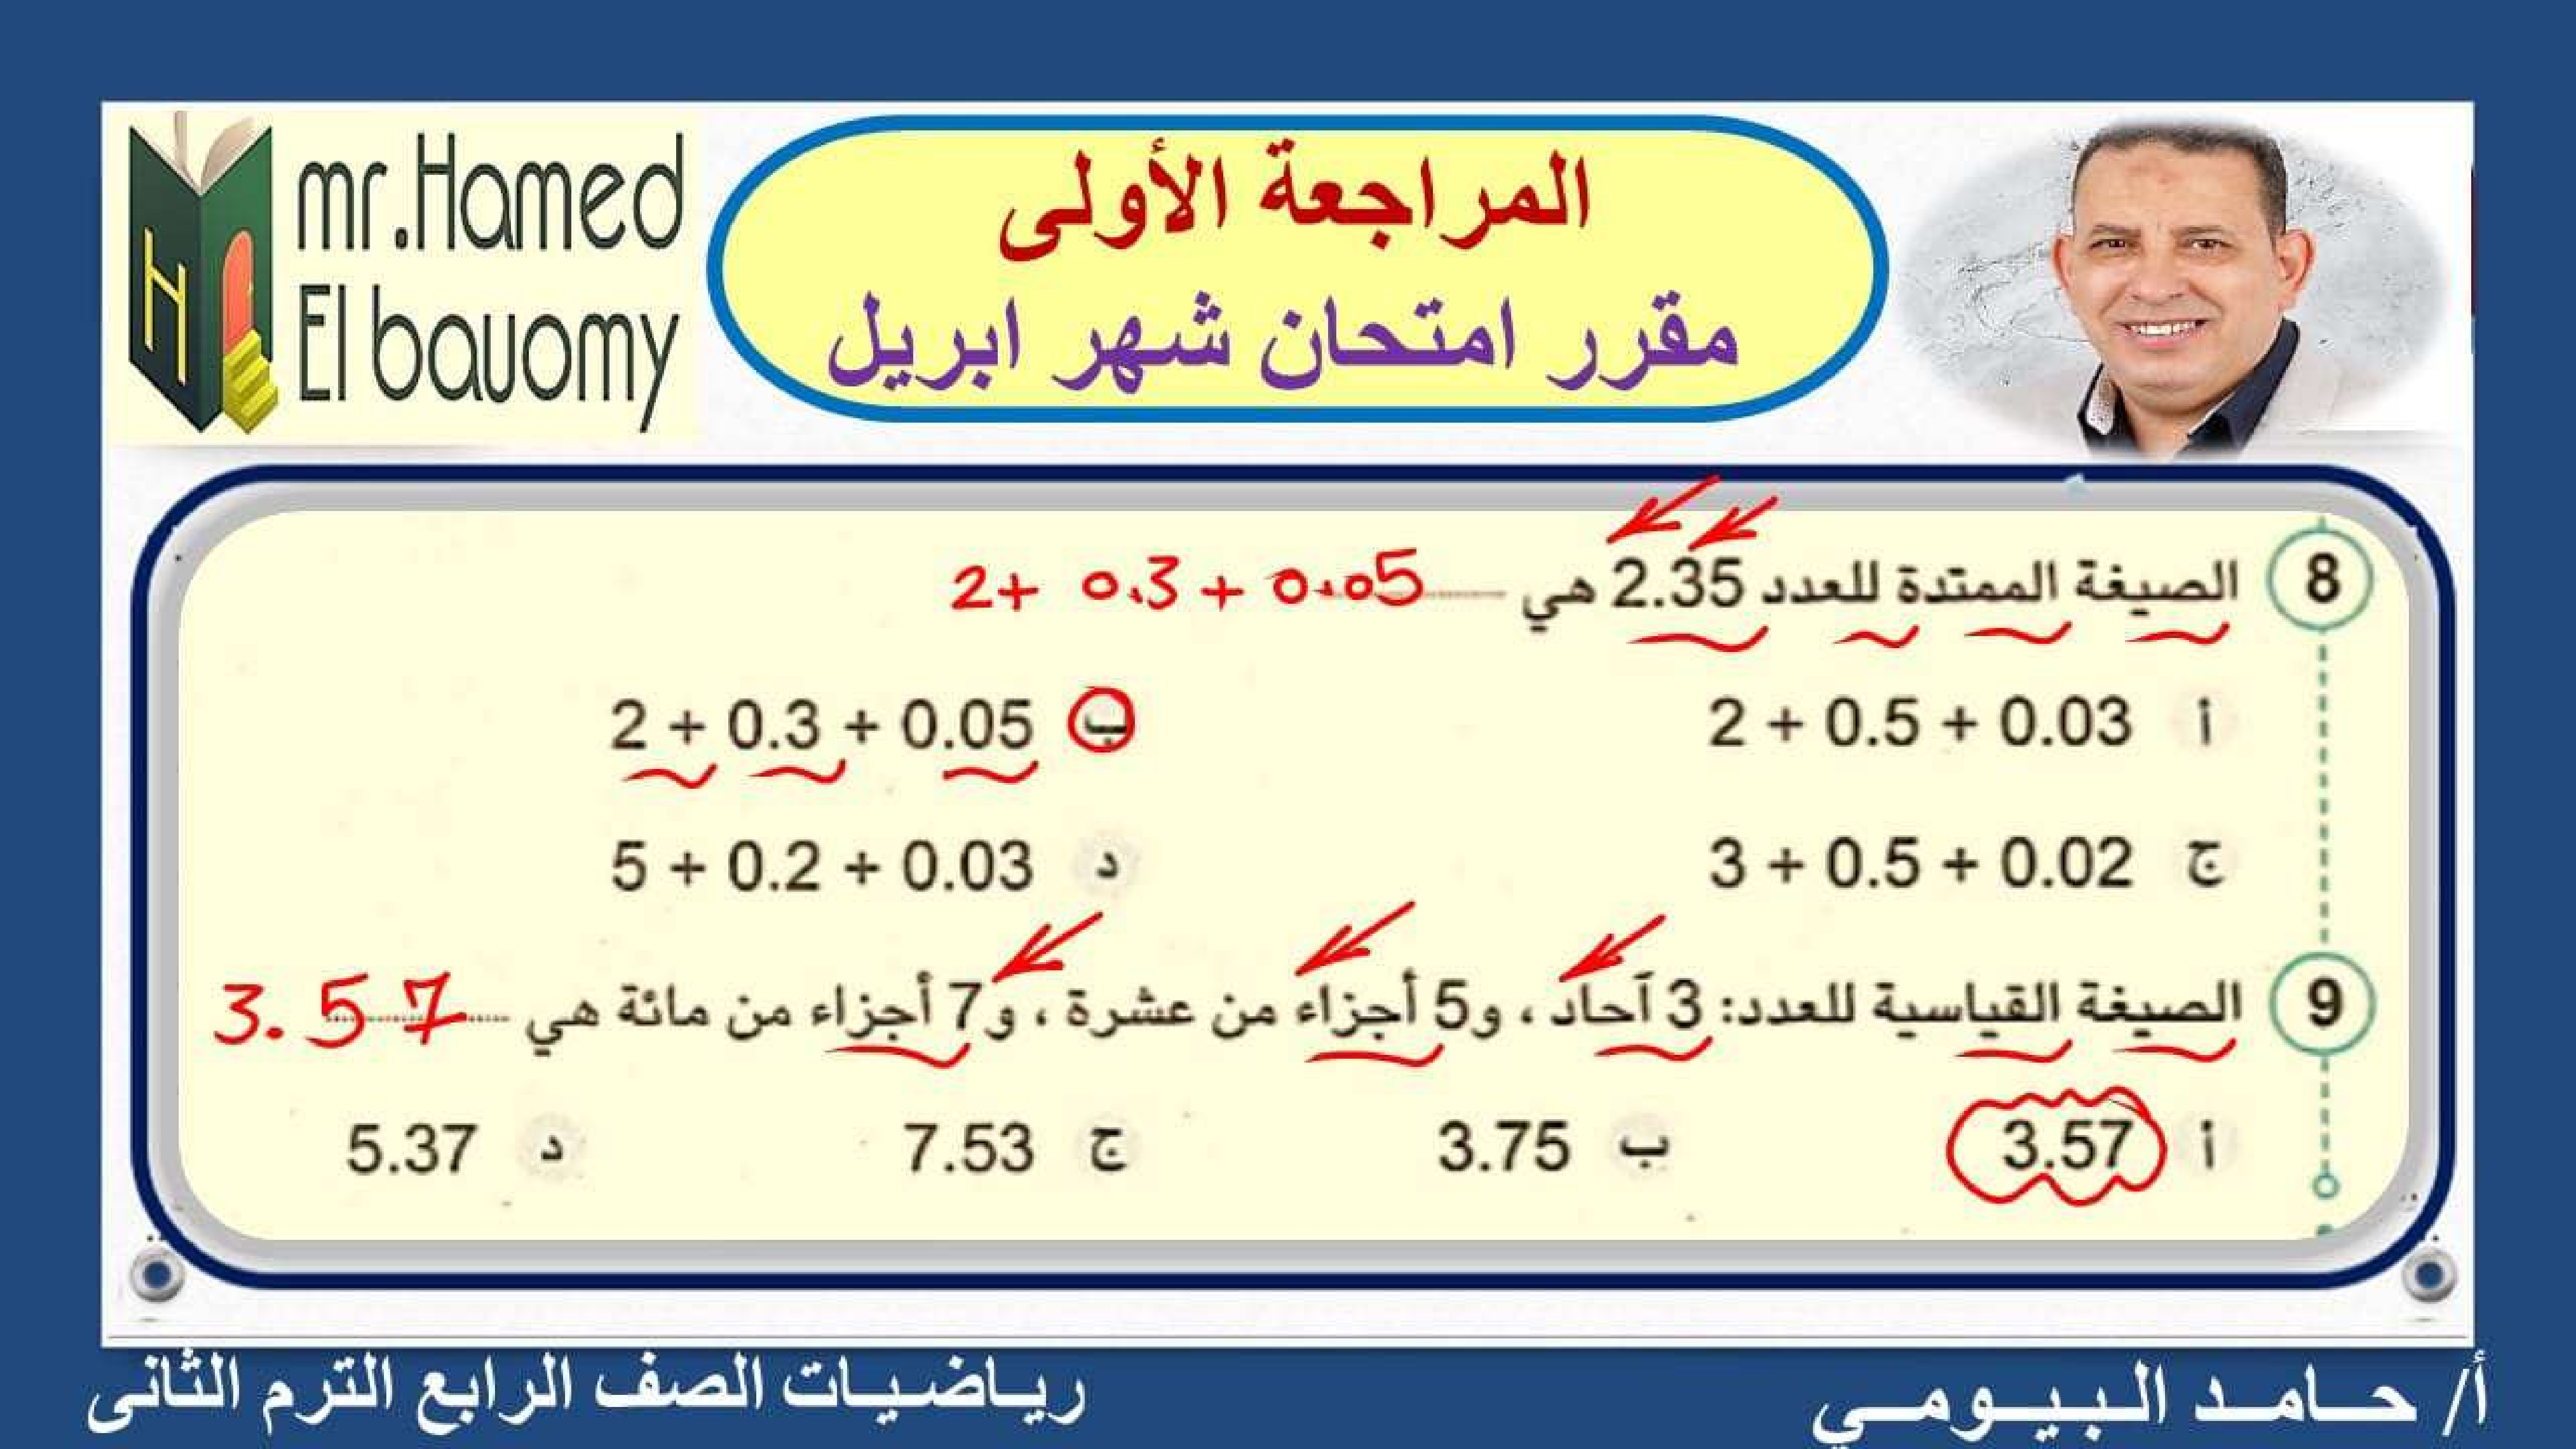 mr.Hamed
El bauomy
المراجعة الأولى
مقرر امتحان شهر ابريل
8 الصيغة الممتدة للعدد 2.35 هي 2+ 0.3 + 0.05
أ 2 + 0.5 + 0.03 ب 2 + 0.3 + 0.05
ج 3 + 0.5 + 0.02 د 5 + 0.2 + 0.03
9 الصيغة القياسية للعدد: 3 آحاد ، و5 أجزاء من عشرة ، و7 أجزاء من مائة هي 3.57
أ 3.57 ب 3.75 ج 7.53 د 5.37
أ/ حـامـد الـبـيـومـي
ريـاضـيـات الصف الرابع الترم الثانى